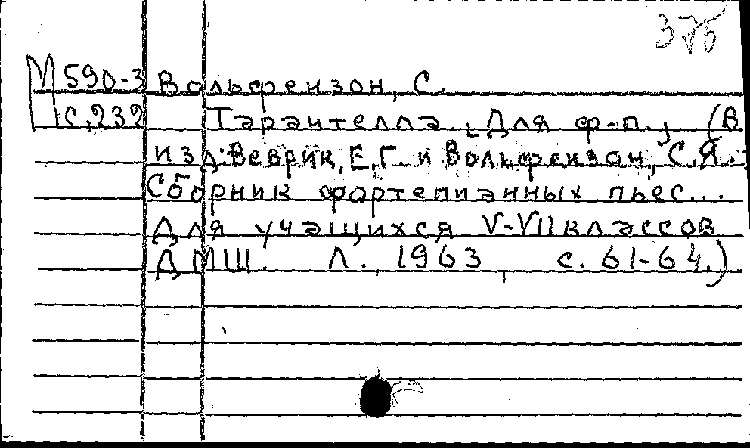 375
М 590-3 Вольфензон, С.
с.232 Тарантелла. [Для ф-п.] (В
изд: Веврик, Е.Г. и Вольфензон, С.Я.
Сборник фортепианных пьес...
Для учащихся V-VII классов
ДМШ. Л., 1963, с. 61-64.)